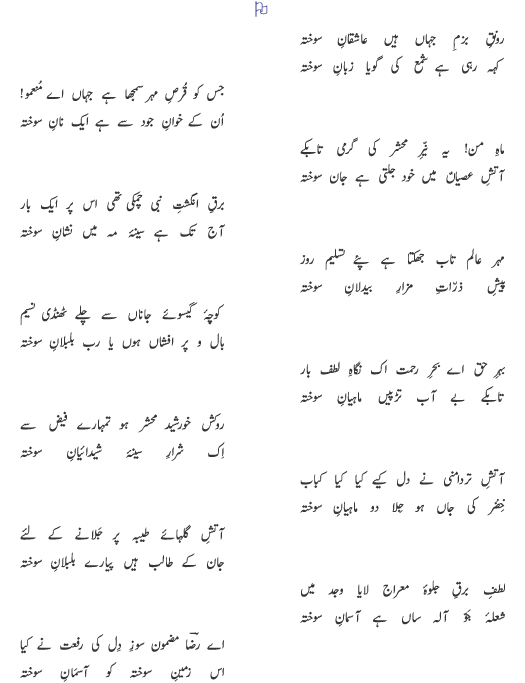 رونقِ بزمِ جہاں ہیں عاشقانِ سوختہ
کہہ رہی ہے شمع کی گویا زبانِ سوختہ
جس کو قُرصِ مہر سمجھا ہے جہاں اے مُنعمو!
اُن کے خوانِ جود سے ہے ایک نانِ سوختہ
ماہِ من! یہ نیّرِ محشر کی گرمی تابکے
آتشِ عصیاں میں خود جلتی ہے جانِ سوختہ
برقِ انگشتِ نبی چمکی تھی اس پر ایک بار
آج تک ہے سینۂ مہ میں نشانِ سوختہ
مہرِ عالم تاب جھکتا ہے پئے تسلیم روز
پیشِ ذرّاتِ مزارِ بیدلانِ سوختہ
کوچۂ گیسوئے جاناں سے چلے ٹھنڈی نسیم
بال و پر افشاں ہوں یا رب بلبلانِ سوختہ
بہرِ حق اے بحرِ رحمت اک نگاہِ لطف بار
تابکے بے آب تڑپیں ماہیانِ سوختہ
روکشِ خورشیدِ محشر ہو تمہارے فیض سے
اِک شرارِ سینۂ شیدائیانِ سوختہ
آتشِ تردامنی نے دل کیے کیا کیا کباب
خِضْر کی جاں ہو جِلا دو ماہیانِ سوختہ
آتشِ گلہائے طیبہ پر جَلانے کے لئے
جان کے طالب ہیں پیارے بلبلانِ سوختہ
لطفِ برقِ جلوۂ معراج لایا وجد میں
شعلۂ جوّالہ ساں ہے آسمانِ سوختہ
اے رضؔا مضمون سوزِ دِل کی رفعت نے کیا
اس زمینِ سوختہ کو آسمانِ سوختہ